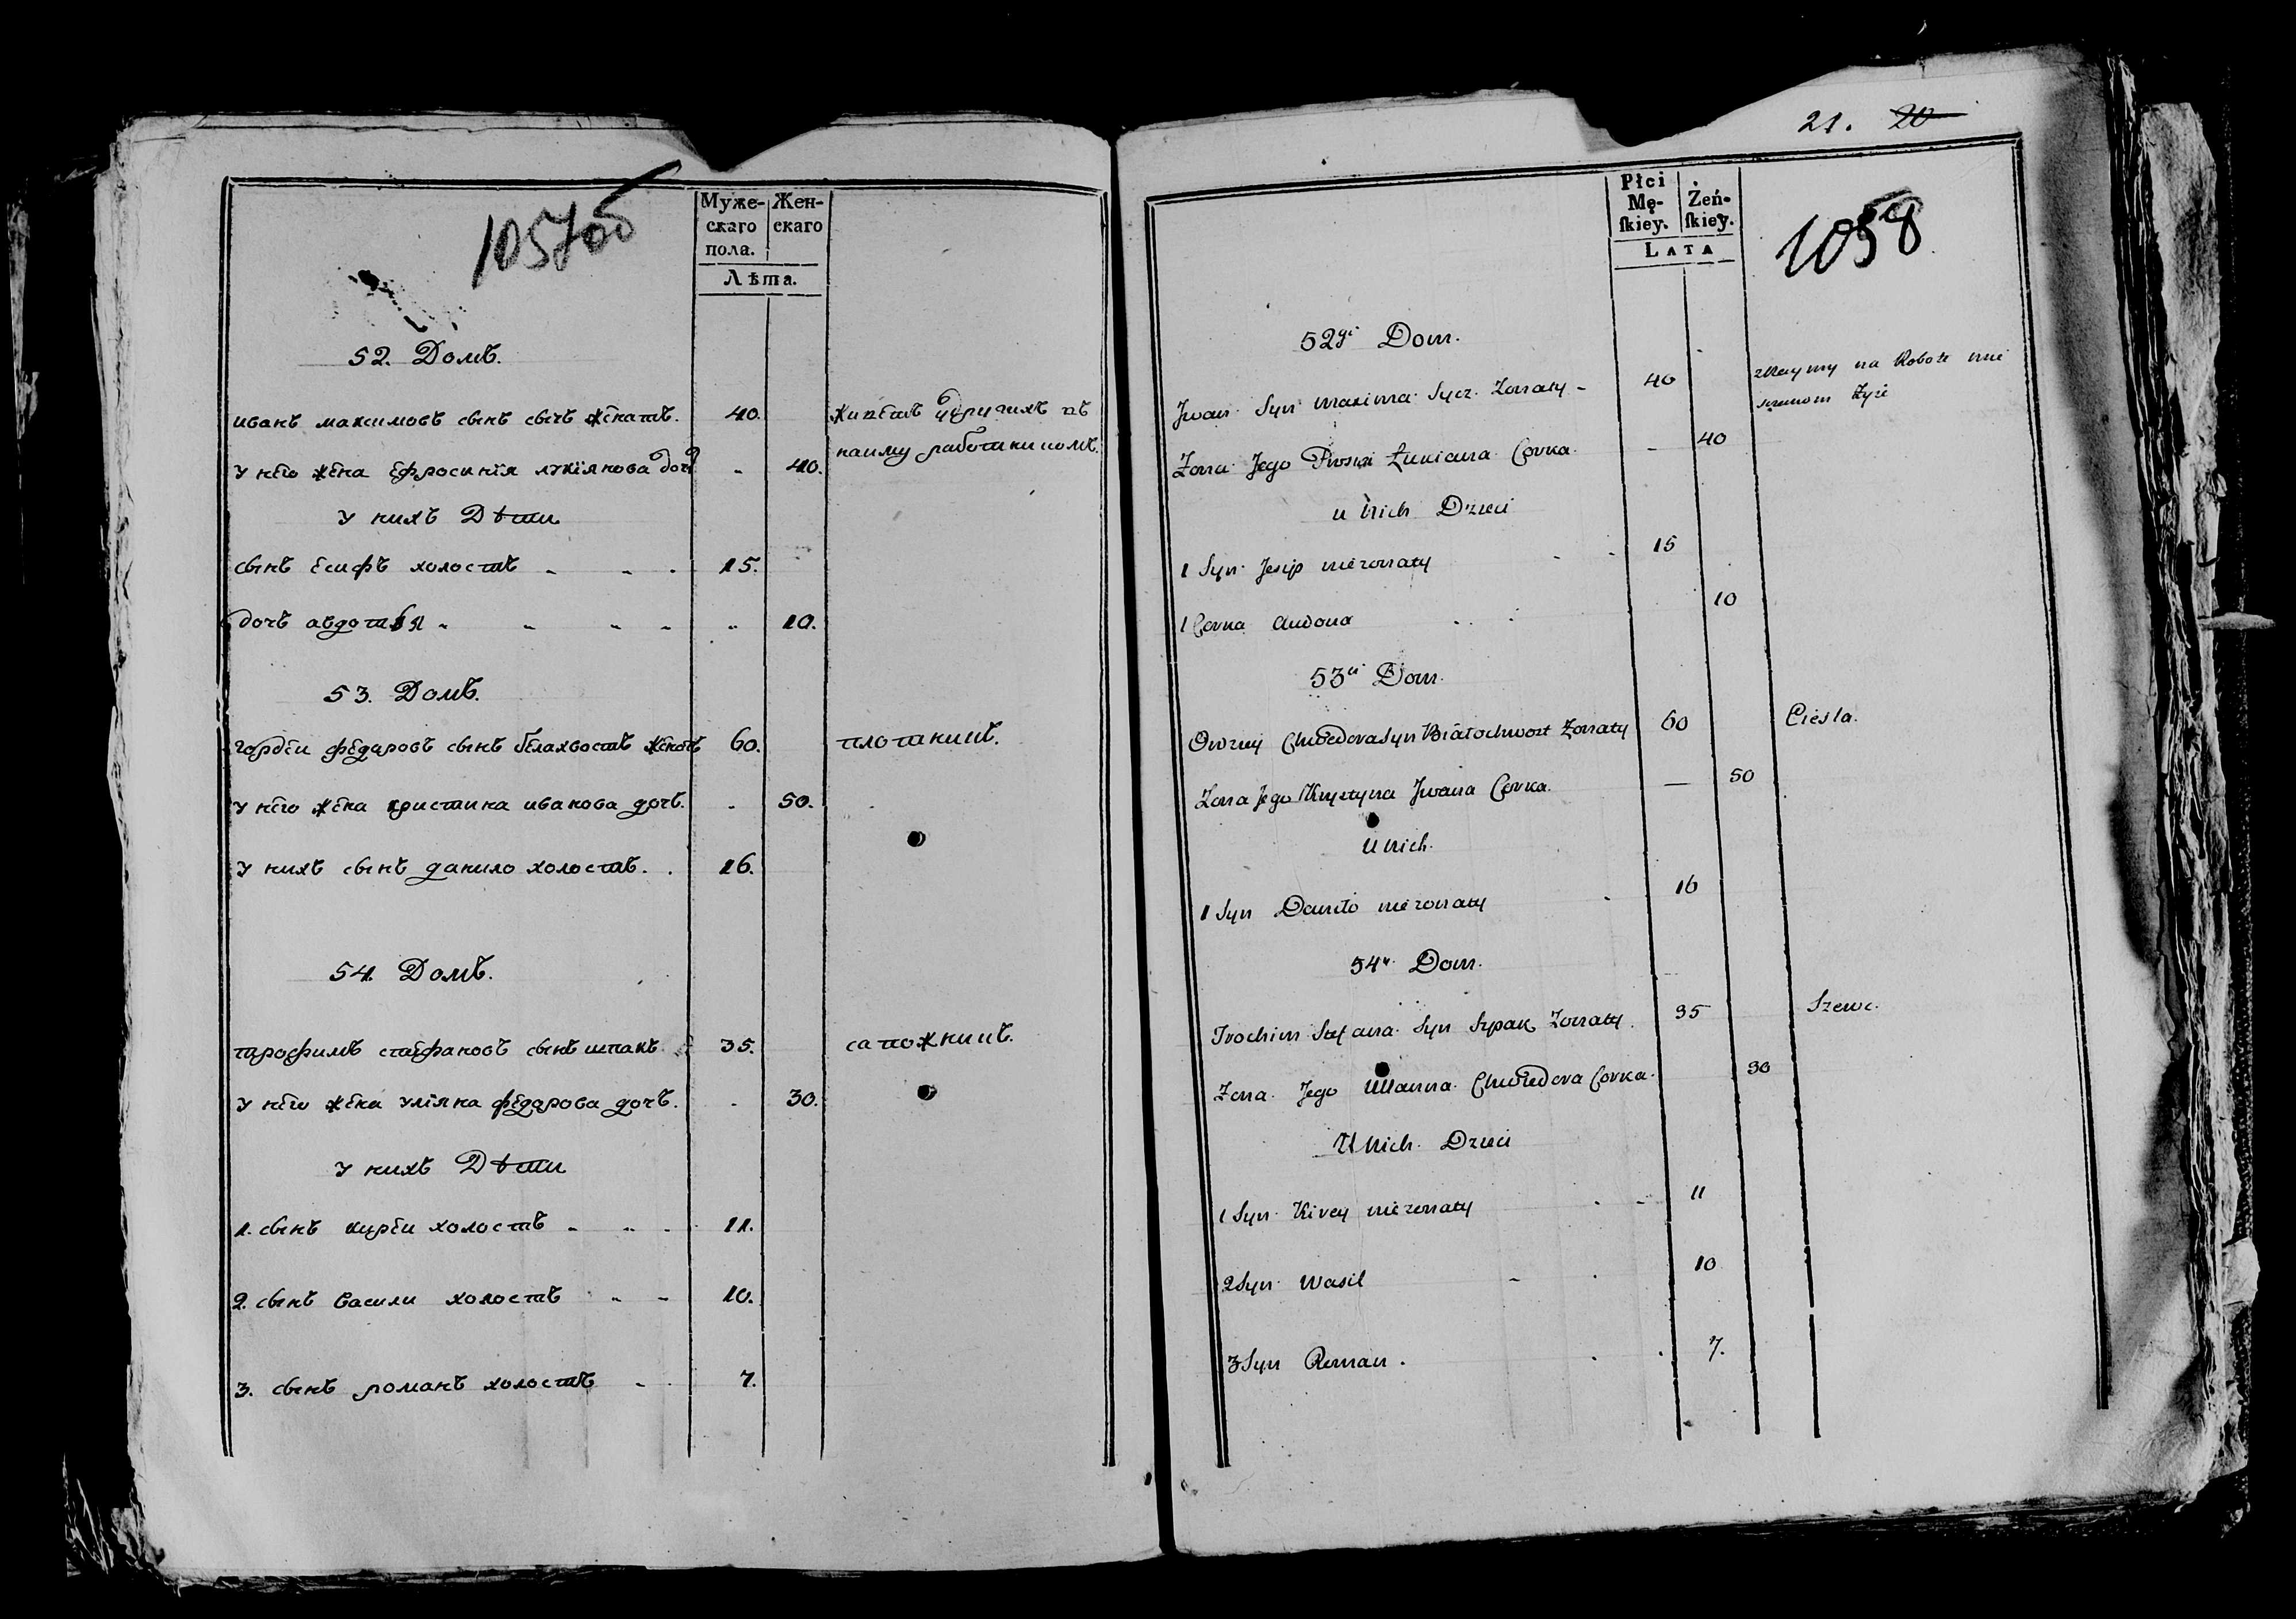 1057об
Муже-
скаго
пола.
Жен-
скаго
Лѣта.
52. Домъ.
иванъ максимовъ сынъ сычъ женатъ. 40. живетъ у других в
наиму работникомъ.
у него жена ефросиния лукіянова доч - 40.
у нихъ Дѣти
сынъ есифъ холостъ - - - 15.
дочъ авдотья - - - - - 10.
53. Домъ.
гордеи федаровъ сынъ белахвостъ женатъ 60. плотникъ.
у него жена кристина иванова дочъ. - 50.
у нихъ сынъ данило холостъ. . 16.
54. Домъ.
трофимъ стефановъ сынъ шпакъ 35. сапожникъ.
у него жена улiяна федарова дочъ. - 30.
у нихъ Дѣти
1. сынъ киреи холостъ - - - 11.
2. сынъ васили холостъ - - 10.
3. сынъ романъ холостъ - 7.
21. 20
Płci
Mę-
ſkiey.
Żeń-
ſkiey.
LATA
1058
52gi Dom.
Jwan Syn maxima Sycz Zonaty - 40 na Robote
Zyie
Zona Jego Prosia Łukiana Corka - 40
u Nich Dzieci
1 Syn Jesip niezonaty - - 15
1 Corka Audota 10
53ci Dom.
Chwedora Syn Białochwost Zonaty 60 Ciesla.
Zona Jego Krystyna Jwana Corka. — 50
U nich.
1 Syn Daniło niezonaty 16
54y Dom.
Trochim Stefana Syn Szpak Zonaty. 35 Szewc.
Zona Jego Ullanna Chwedora Corka. 30
U Nich Dzieci
1 Syn Kirey niezonaty - - 11
2 Syn Wasil - 10
3 Syn Roman . 7.